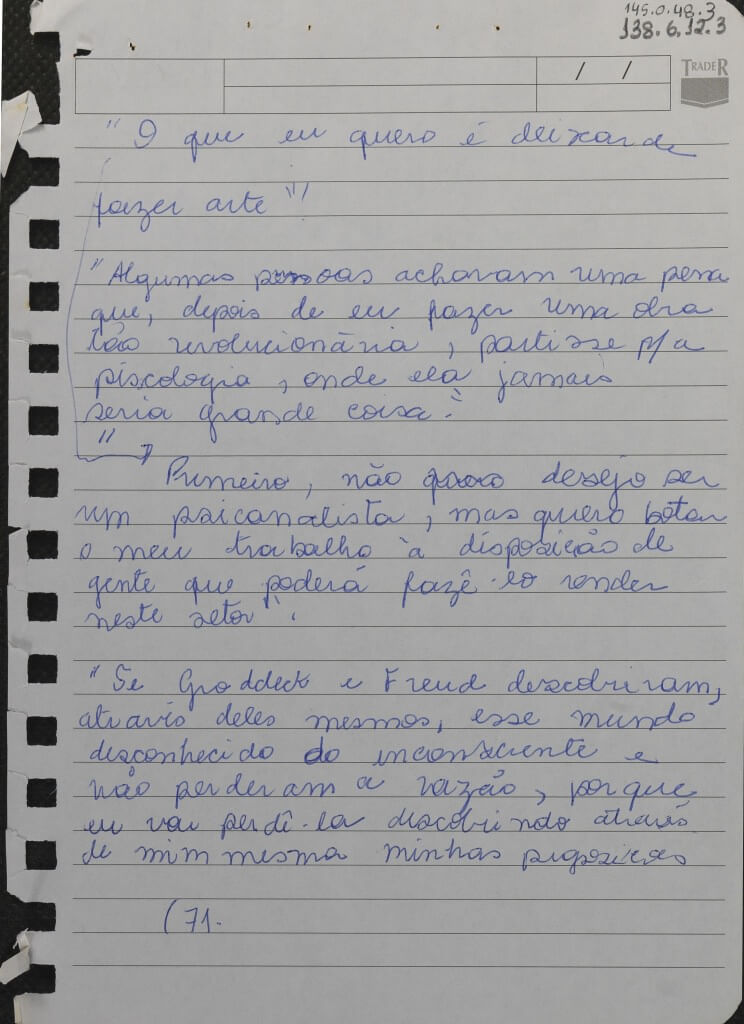 145.0.48.3
138.6.12.3
/ /
TRADER
"O que eu quero é deixar de
fazer arte"
"Algumas pessoas achavam uma pena
que, depois de eu fazer uma obra
tão revolucionária, partisse p/a
piscologia, onde ela jamais
seria grande coisa."
"
Primeiro, não desejo ser
um psicanalista, mas quero botar
o meu trabalho à disposição de
gente que poderá fazê-lo render
neste setor".
"Se Groddeck e Freud descobriram,
através deles mesmos, esse mundo
desconhecido do inconsciente e
não perderam a razão, porque
eu vou perdê-la descobrindo através
de mim mesma minhas proposições
(71.